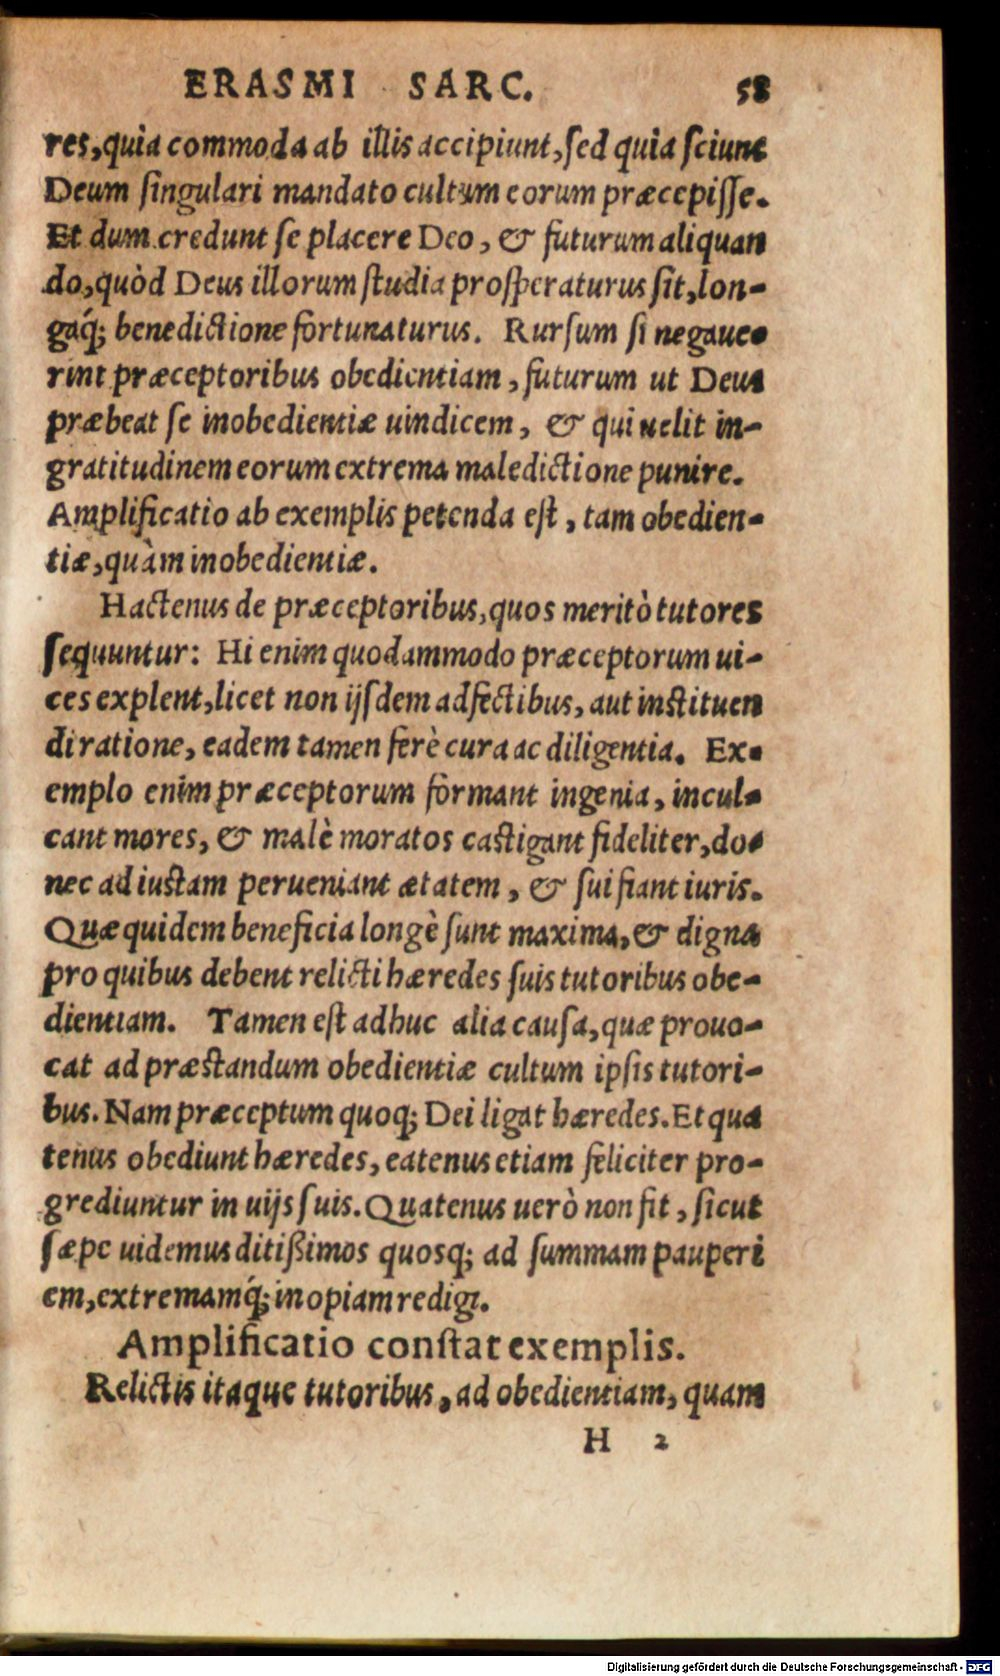 ERASMI SARC. 58
res, quia commoda ab illis accipiunt, sed quia sciunt
Deum singulari mandato cultum eorum præcepisse.
Et dum credunt se placere Deo, & futurum aliquan
do, quòd Deus illorum studia prosperaturus sit, lon-
gaq́; benedictione fortunaturus. Rursum si negaue-
rint præceptoribus obedientiam, futurum ut Deus
præbeat se inobedientiæ uindicem, & qui uelit in-
gratitudinem eorum extrema maledictione punire.
Amplificatio ab exemplis petenda est, tam obedien-
tiæ, quàm inobedientiæ.
Hactenus de præceptoribus, quos meritò tutores
sequuntur: Hi enim quodammodo præceptorum ui-
ces explent, licet non ijsdem adfectibus, aut instituen
di ratione, eadem tamen ferè cura ac diligentia. Ex-
emplo enim præceptorum formant ingenia, incul-
cant mores, & malè moratos castigant fideliter, do-
nec ad iustam perueniant ætatem, & sui fiant iuris.
Quæ quidem beneficia longè sunt maxima, & digna
pro quibus debent relicti hæredes suis tutoribus obe-
dientiam. Tamen est adhuc alia causa, quæ prouo-
cat ad præstandum obedientiæ cultum ipsis tutori-
bus. Nam præceptum quoq; Dei ligat hæredes. Et qua
tenus obediunt hæredes, eatenus etiam feliciter pro-
grediuntur in uijs suis. Quatenus uerò non fit, sicut
sæpe uidemus ditißimos quosq; ad summam pauperi
em, extremamq́; inopiam redigi.
Amplificatio constat exemplis.
Relictis itaque tutoribus, ad obedientiam, quam
H 2
Digitalisierung gefördert durch die Deutsche Forschungsgemeinschaft - DFG